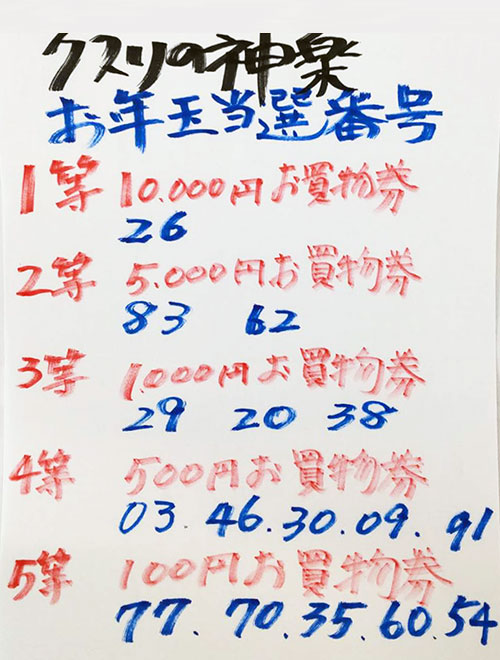 クスリの神楽
お年玉当選番号
1等 10.000円お買物券
26
2等 5.000円お買物券
83 62
3等 1.000円お買物券
29 20 38
4等 500円お買物券
03.46.30.09.91
5等 100円お買物券
77.70.35.60.54